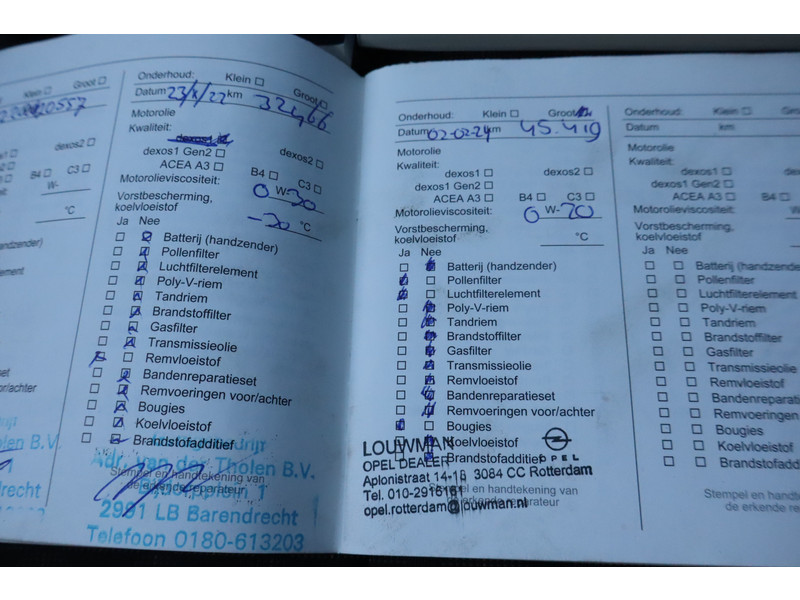 Klein Groot
20557
dexos2
B4 C3
W-
°C
Onderhoud: Klein Groot
Datum 23/ /22 km 32466
Motorolie
Kwaliteit:
dexos2
dexos1 Gen2
ACEA A3 B4 C3
Motorolieviscositeit: 0 W-30
Vorstbescherming,
koelvloeistof -30 °C
Ja Nee
Batterij (handzender)
Pollenfilter
Luchtfilterelement
Poly-V-riem
Tandriem
Brandstoffilter
Gasfilter
Transmissieolie
Remvloeistof
Bandenreparatieset
Remvoeringen voor/achter
Bougies
Koelvloeistof
Brandstofadditief
Adr. van der Tholen B.V.
Stempel en handtekening van
de erkende reparateur
2991 LB Barendrecht
Telefoon 0180-613203
Onderhoud: Klein Groot
Datum 02-02-24 km 45.419
Motorolie
Kwaliteit:
dexos1 dexos2
dexos1 Gen2
ACEA A3 B4 C3
Motorolieviscositeit: 0 W-20
Vorstbescherming,
koelvloeistof °C
Ja Nee
Batterij (handzender)
Pollenfilter
Luchtfilterelement
Poly-V-riem
Tandriem
Brandstoffilter
Gasfilter
Transmissieolie
Remvloeistof
Bandenreparatieset
Remvoeringen voor/achter
Bougies
Koelvloeistof
Brandstofadditief
LOUWMAN
OPEL DEALER
OPEL
Aplonistraat 14-16 3084 CC Rotterdam
Tel. 010-2916161
Stempel en handtekening van
opel.rotterdam@louwman.nl
de erkende reparateur
Onderhoud: Klein
Datum km
Motorolie
Kwaliteit:
dexos1
dexos1 Gen2
ACEA A3 B4
Motorolieviscositeit: W-
Vorstbescherming,
koelvloeistof
Ja Nee
Batterij (handzender)
Pollenfilter
Luchtfilterelement
Poly-V-riem
Tandriem
Brandstoffilter
Gasfilter
Transmissieolie
Remvloeistof
Bandenrepara
Remvoeringen
Bougies
Koelvloeistof
Brandstofadd
Stempel en h
de erkende